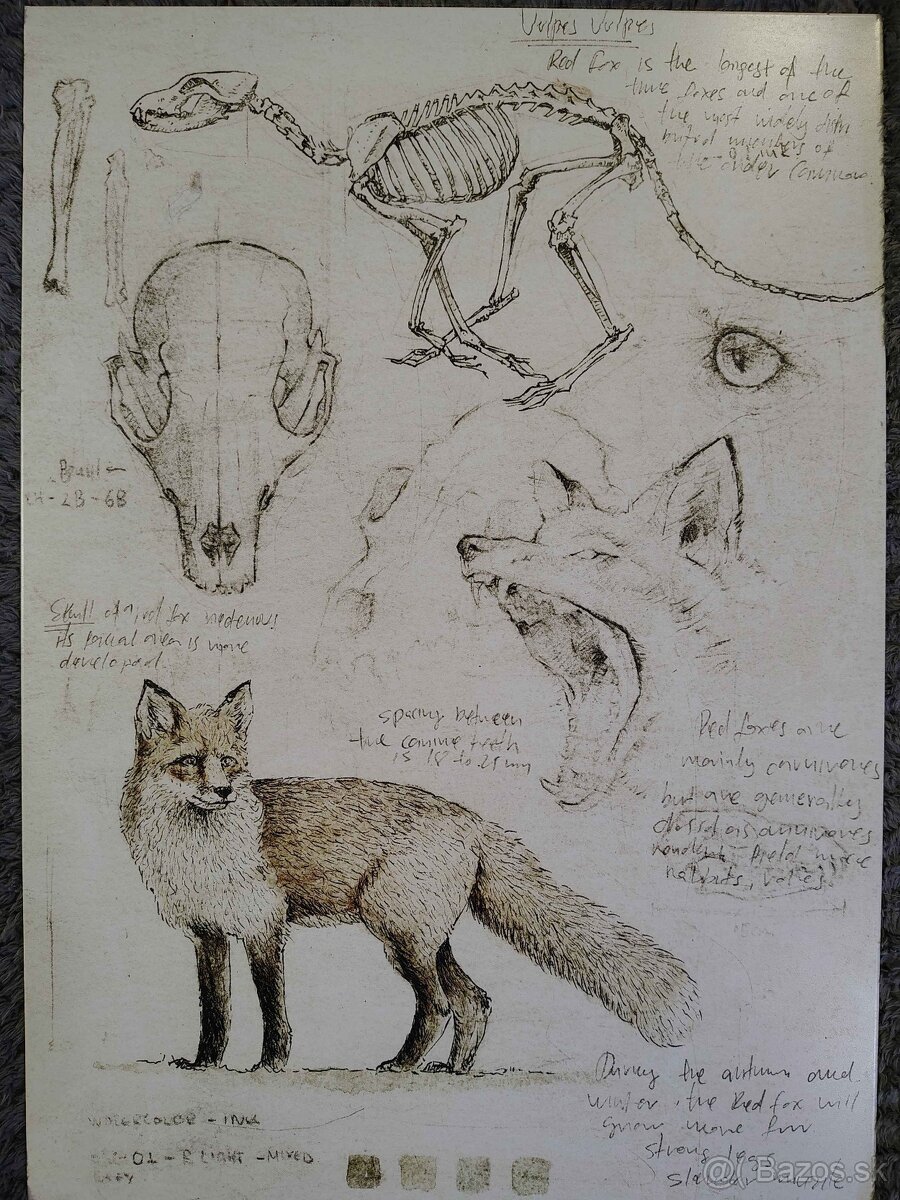 Vulpes Vulpes
Red Fox is the longest of the
three foxes and one of
the most widely distri
buted members of
the order Carnivora.
28 - 6B
Skull of a red fox
its facial area is more
developed.
spacing between
the canine teeth
is 18 to 25 mm
Red foxes are
mainly carnivores
but are generally
as omnivores
field mice
voles
During the autumn and
winter, the Red fox will
grow more fur
strong legs
WATERCOLOR - INK
- 02 - B LIGHT - MIXED
@ Bazos.sk